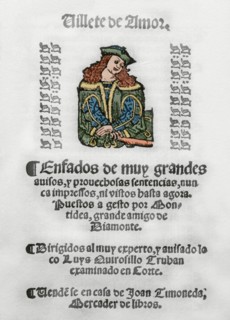 Villete de Amor.
¶ Enfados de muy grandes
auisos, y prouechosas sentencias, nun
ca impressos, ni vistos hasta agora.
Puestos a gesto por Mon-
tidea, grande amigo de
Diamonte.
¶ Dirigidos al muy experto, y auisado lo
co Luys Quirosillo Truhan
examinado en Corte.
¶ Uendẽ se en casa de Joan Timoneda,
Mercader de libros.